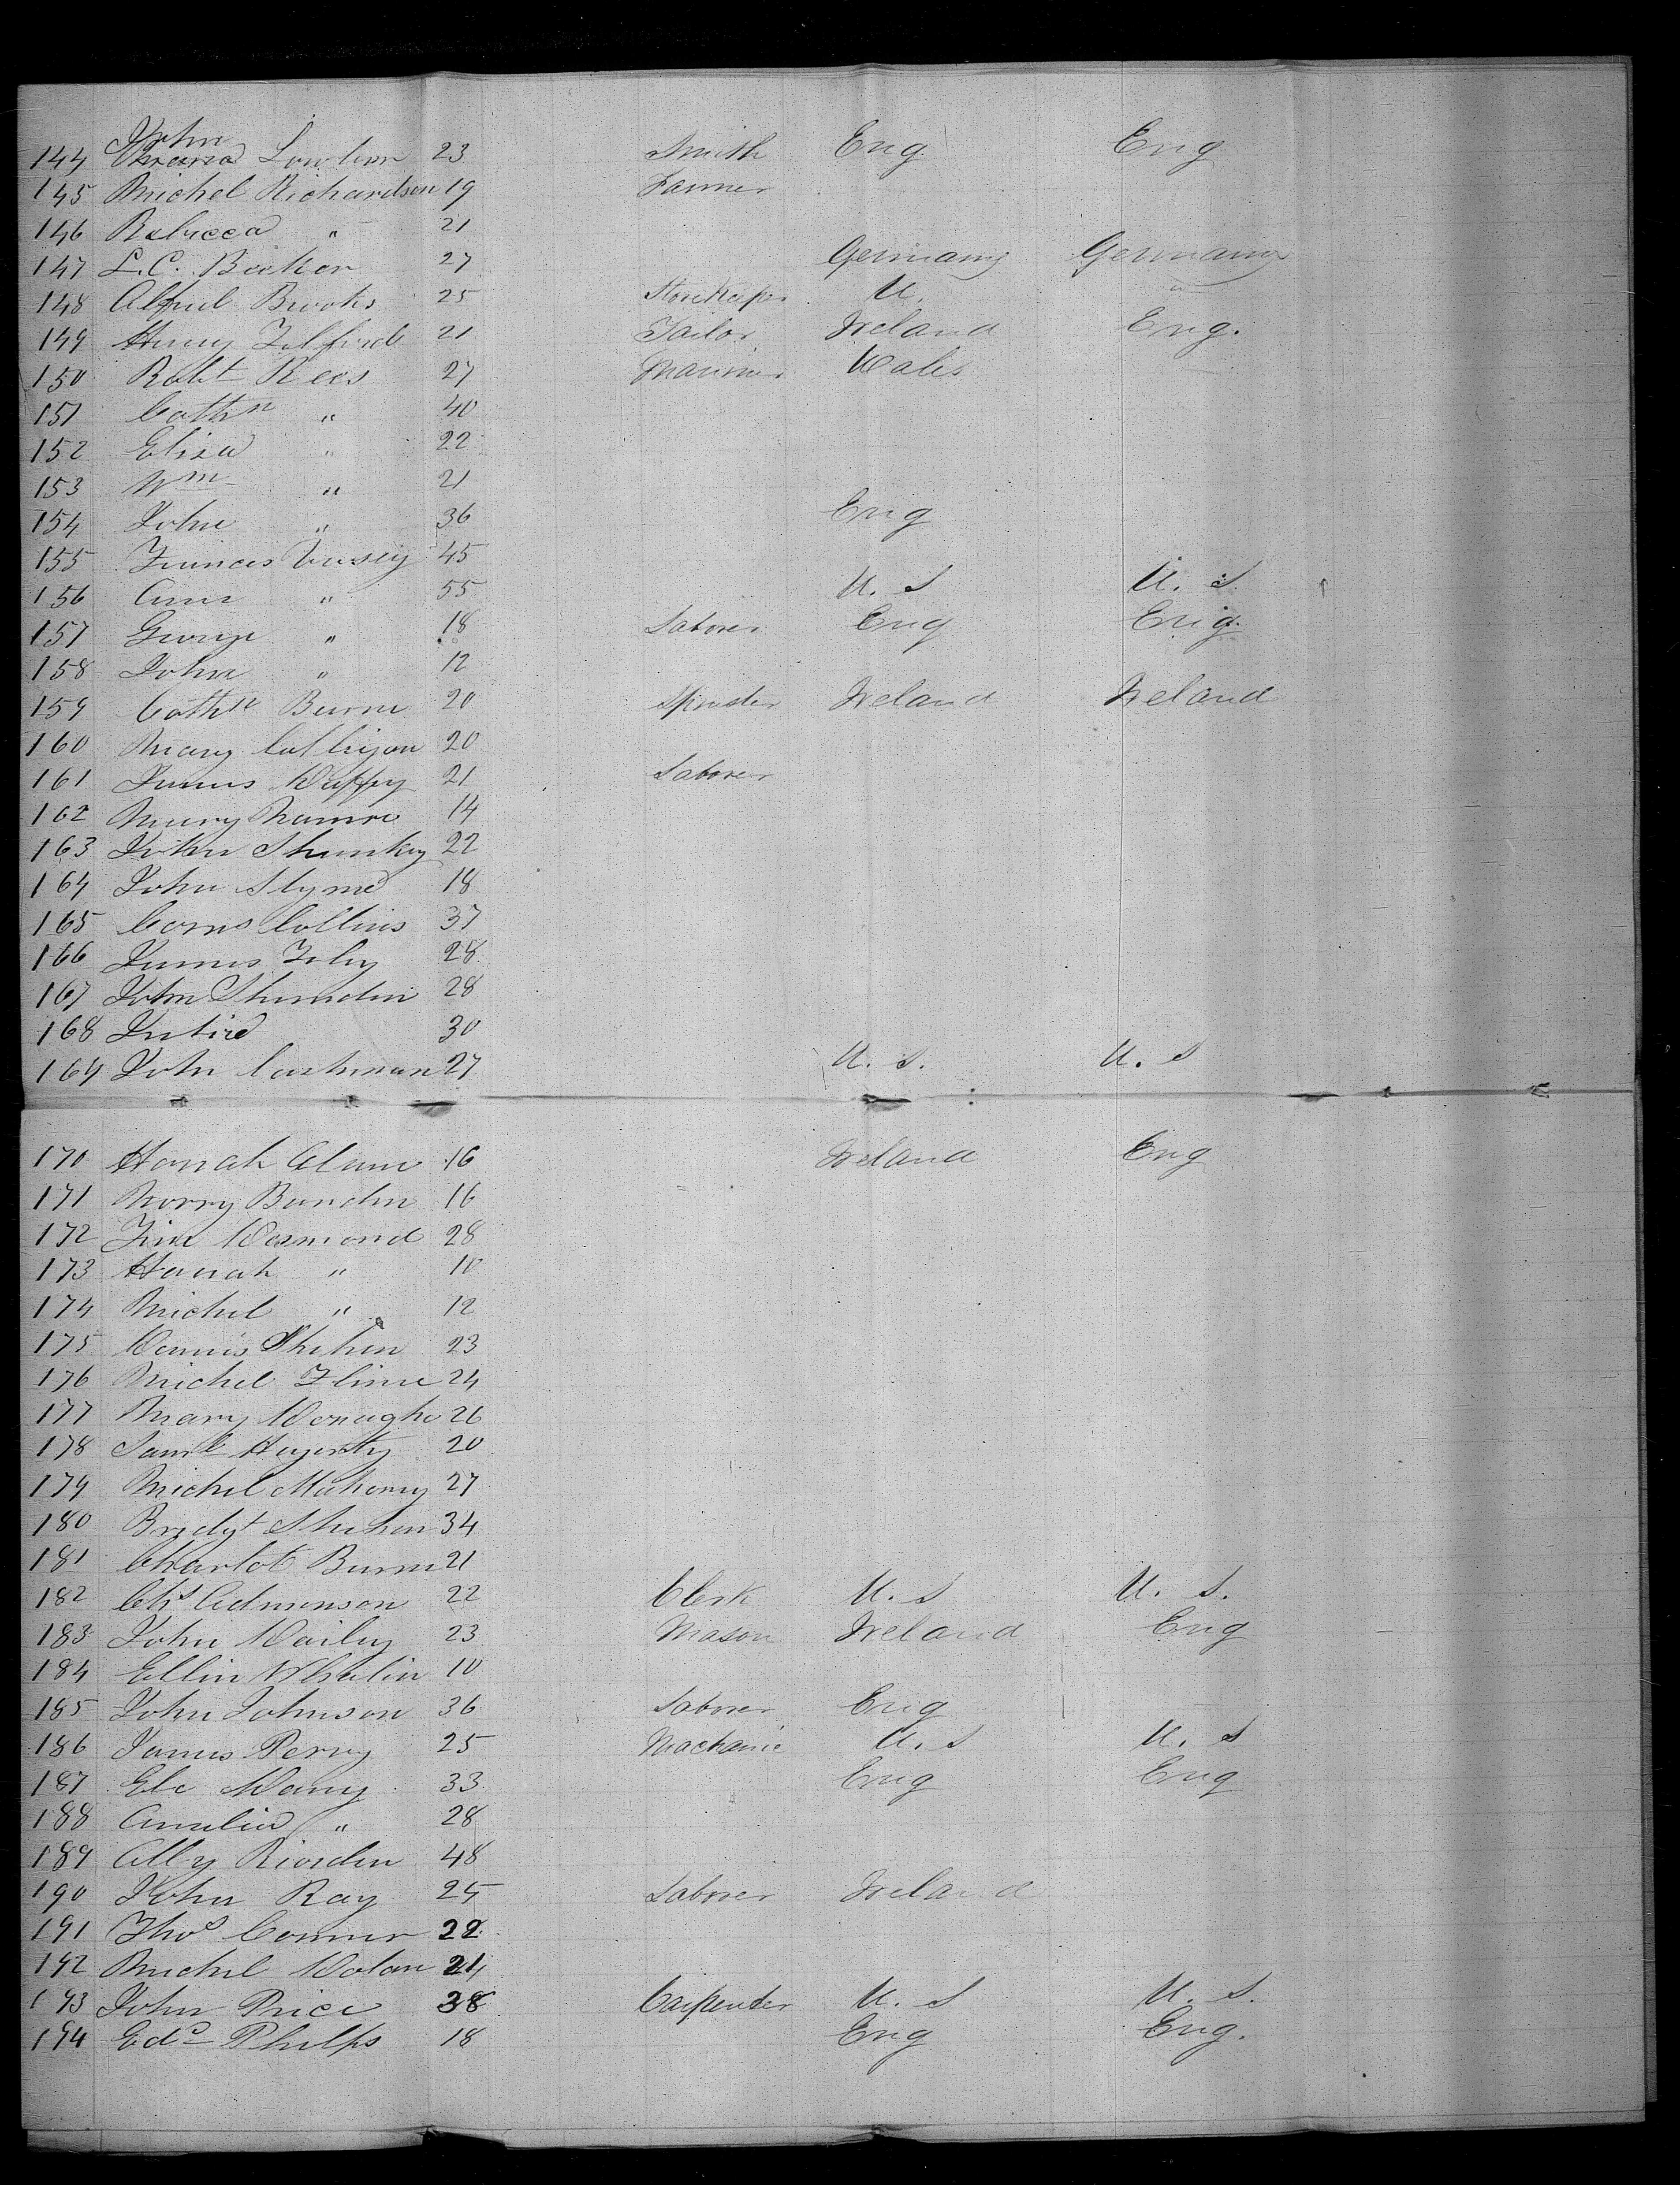 John
144 Lowther 23 Smith Eng Eng
145 Michel Richardson 19 Farmer
146 Rebecca " 21
147 L. C. Becker 27 Germany Germany
148 Alfred Brooks 25 Storekeeper U. "
149 Henry Telford 21 Tailor Ireland Eng.
150 Robt Rees 27 Mariner Wales
151 Cathn " 40
152 Eliza " 22
153 Wm " 21
154 John " 36 Eng
155 Frances Vusey 45
156 Ann " 55 U. S U. S.
157 George " 18 Laborer Eng Eng.
158 John " 12
159 Cathn Burn 20 Spinster Ireland Ireland
160 Mary Calligan 20
161 James Duffy 21 Laborer
162 Mary 14
163 John Shunkey 22
164 John Slyne 18
165 Corns Collins 37
166 James Foley 28
167 John 28
168 30
169 John Cashman 27 U. S. U. S
170 Hanah Clune 16 Ireland Eng
171 Norry Bandon 16
172 Tim Desmond 28
173 Hanah " 10
174 Michel " 12
175 Dennis Shehen 23
176 Michel Flinn 24
177 Mary Donagho 26
178 Saml Hagerty 20
179 Michel Mahony 27
180 Bridgt Shehan 34
181 Charlot Burn 21
182 Chs Admonson 22 Clerk U. S U. S.
183 John Dailey 23 Mason Ireland Eng
184 Ellin Whelin 10
185 John Johnson 36 Laborer Eng
186 James Perry 25 Mackanic U. S U. S
187 Davy 33 Eng Eng
188 Amelia " 28
189 Abby Riordin 48
190 John Ray 25 Laborer Ireland
191 Thos Conner 22
192 Michel Dolan 24
193 John Price 38 Carpenter U. S U. S.
194 Edd Phelps 18 Eng Eng.